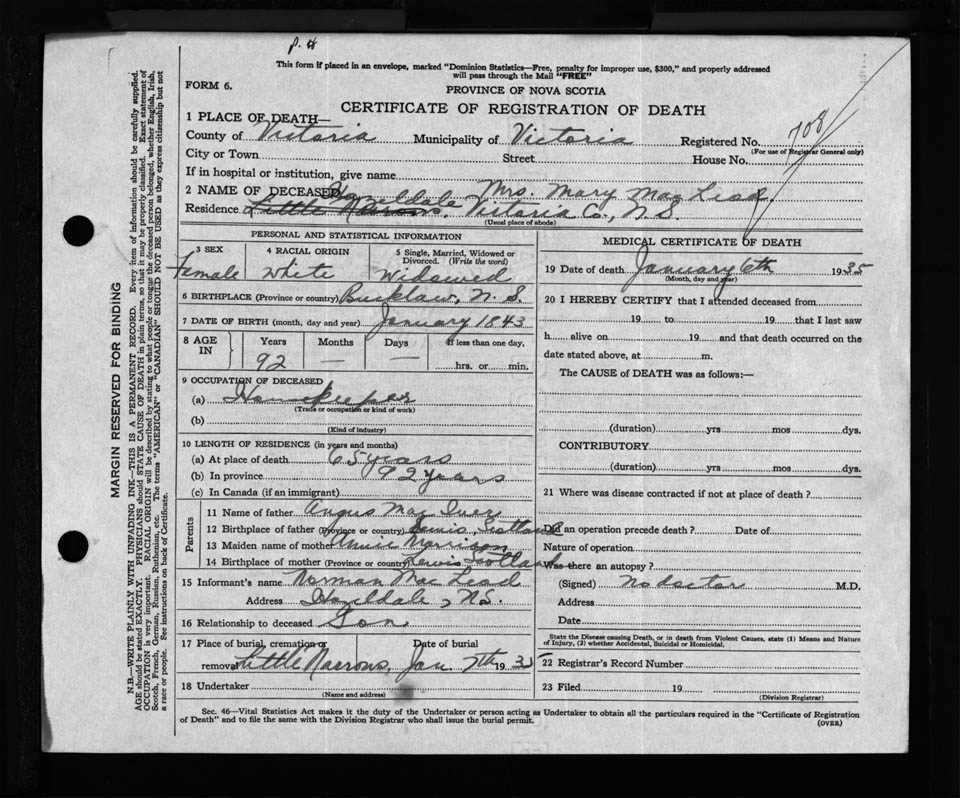 This form if placed in an envelope, marked "Dominion Statistics—Free, penalty for improper use, $300," and properly addressed
will pass through the Mail "FREE"
FORM 6.
PROVINCE OF NOVA SCOTIA
CERTIFICATE OF REGISTRATION OF DEATH
1 PLACE OF DEATH—
County of Victoria Municipality of Victoria Registered No. 708
(For use of Registrar General only)
City or Town Street House No.
If in hospital or institution, give name
2 NAME OF DECEASED Mrs. Mary MacLeod
Residence Little Narrows. Hazeldale Victoria Co., N.S.
(Usual place of abode)
PERSONAL AND STATISTICAL INFORMATION
3 SEX 4 RACIAL ORIGIN 5 Single, Married, Widowed or Divorced. (Write the word)
Female White Widowed
6 BIRTHPLACE (Province or country) Bucklaw, N.S.
7 DATE OF BIRTH (month, day and year) January 1843
8 AGE IN Years Months Days If less than one day,
92 — — hrs. or min.
9 OCCUPATION OF DECEASED
(a) Housekeeper
(Trade or occupation or kind of work)
(b)
(Kind of industry)
10 LENGTH OF RESIDENCE (in years and months)
(a) At place of death 65 years
(b) In province 92 years
(c) In Canada (if an immigrant)
Parents
11 Name of father Angus MacIver
12 Birthplace of father (Province or country) Lewis, Scotland
13 Maiden name of mother Annie Morrison
14 Birthplace of mother (Province or country) Lewis Scotland
15 Informant's name Norman MacLeod
Address Hazeldale, N.S.
16 Relationship to deceased Son
17 Place of burial, cremation or removal Little Narrows, Date of burial Jan. 7th 1935
18 Undertaker
(Name and address)
MEDICAL CERTIFICATE OF DEATH
19 Date of death January 6th 1935
(Month, day and year)
20 I HEREBY CERTIFY that I attended deceased from
19 to 19 that I last saw
h alive on 19 and that death occurred on the
date stated above, at m.
The CAUSE of DEATH was as follows:—
(duration) yrs mos dys.
CONTRIBUTORY
(duration) yrs mos dys.
21 Where was disease contracted if not at place of death ?
Did an operation precede death ? Date of
Nature of operation
Was there an autopsy ?
(Signed) No doctor M.D.
Address
Date
State the Disease causing Death, or in death from Violent Causes, state (1) Means and Nature
of Injury, (2) whether Accidental, Suicidal or Homicidal.
22 Registrar's Record Number
23 Filed 19
(Division Registrar)
Sec. 46—Vital Statistics Act makes it the duty of the Undertaker or person acting as Undertaker to obtain all the particulars required in the "Certificate of Registration
of Death" and to file the same with the Division Registrar who shall issue the burial permit.
(OVER)
MARGIN RESERVED FOR BINDING
N.B.—WRITE PLAINLY WITH UNFADING INK—THIS IS A PERMANENT RECORD. Every item of information should be carefully supplied.
AGE should be stated EXACTLY. PHYSICIANS should STATE CAUSE OF DEATH in plain terms, so that it may be properly classified. Exact statement of
OCCUPATION is very important. RACIAL ORIGIN will be described by stating to what people or tongue the deceased person belonged, whether English, Irish,
Scotch, French, German, Russian, Ruthenian, etc. The terms "AMERICAN" or "CANADIAN" SHOULD NOT BE USED as they express citizenship but not
a race or people. See instructions on back of Certificate.